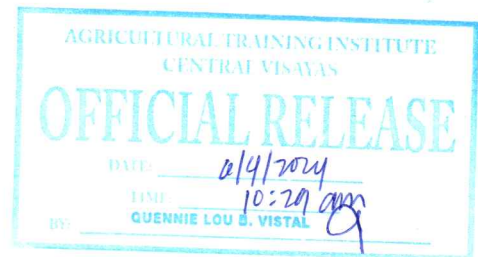 AGRICULTURAL TRAINING INSTITUTE
CENTRAL VISAYAS
OFFICIAL RELEASE
DATE: 6/4/2024
TIME: 10:29 am
BY: QUENNIE LOU B. VISTAL